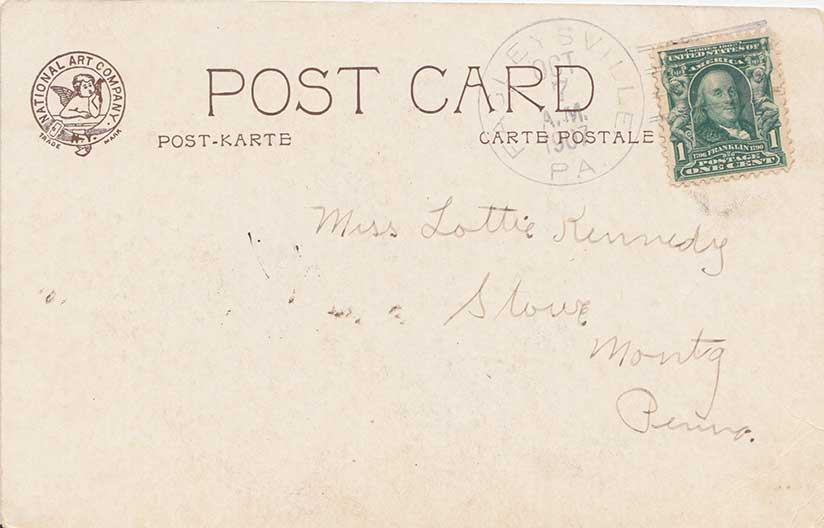 NATIONAL ART COMPANY.
N.Y.
TRADE MARK
POST CARD
POST-KARTE
CARTE POSTALE
OCT
7
A.M.
1907
PA.
SERIES 1902
UNITED STATES OF
AMERICA
1 1
1706 FRANKLIN 1790
POSTAGE
ONE CENT
Miss Lottie Kennedy
Stowe
Montg
Penna.